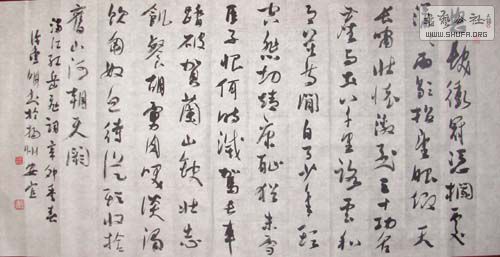 怒髮衝冠憑欄處
瀟瀟雨歇抬望眼仰天
長嘯壯懷激烈三十功名
塵與土八千里路雲和
月莫等閒白了少年頭
空悲切靖康恥猶未雪
臣子恨何時滅駕長車
踏破賀蘭山缺壯志
飢餐胡虜肉笑談渴
飲匈奴血待從頭收拾
舊山河朝天闕
滿江紅岳飛詞辛卯季春
明書於揚州安宜
www.SHUFA.ORG